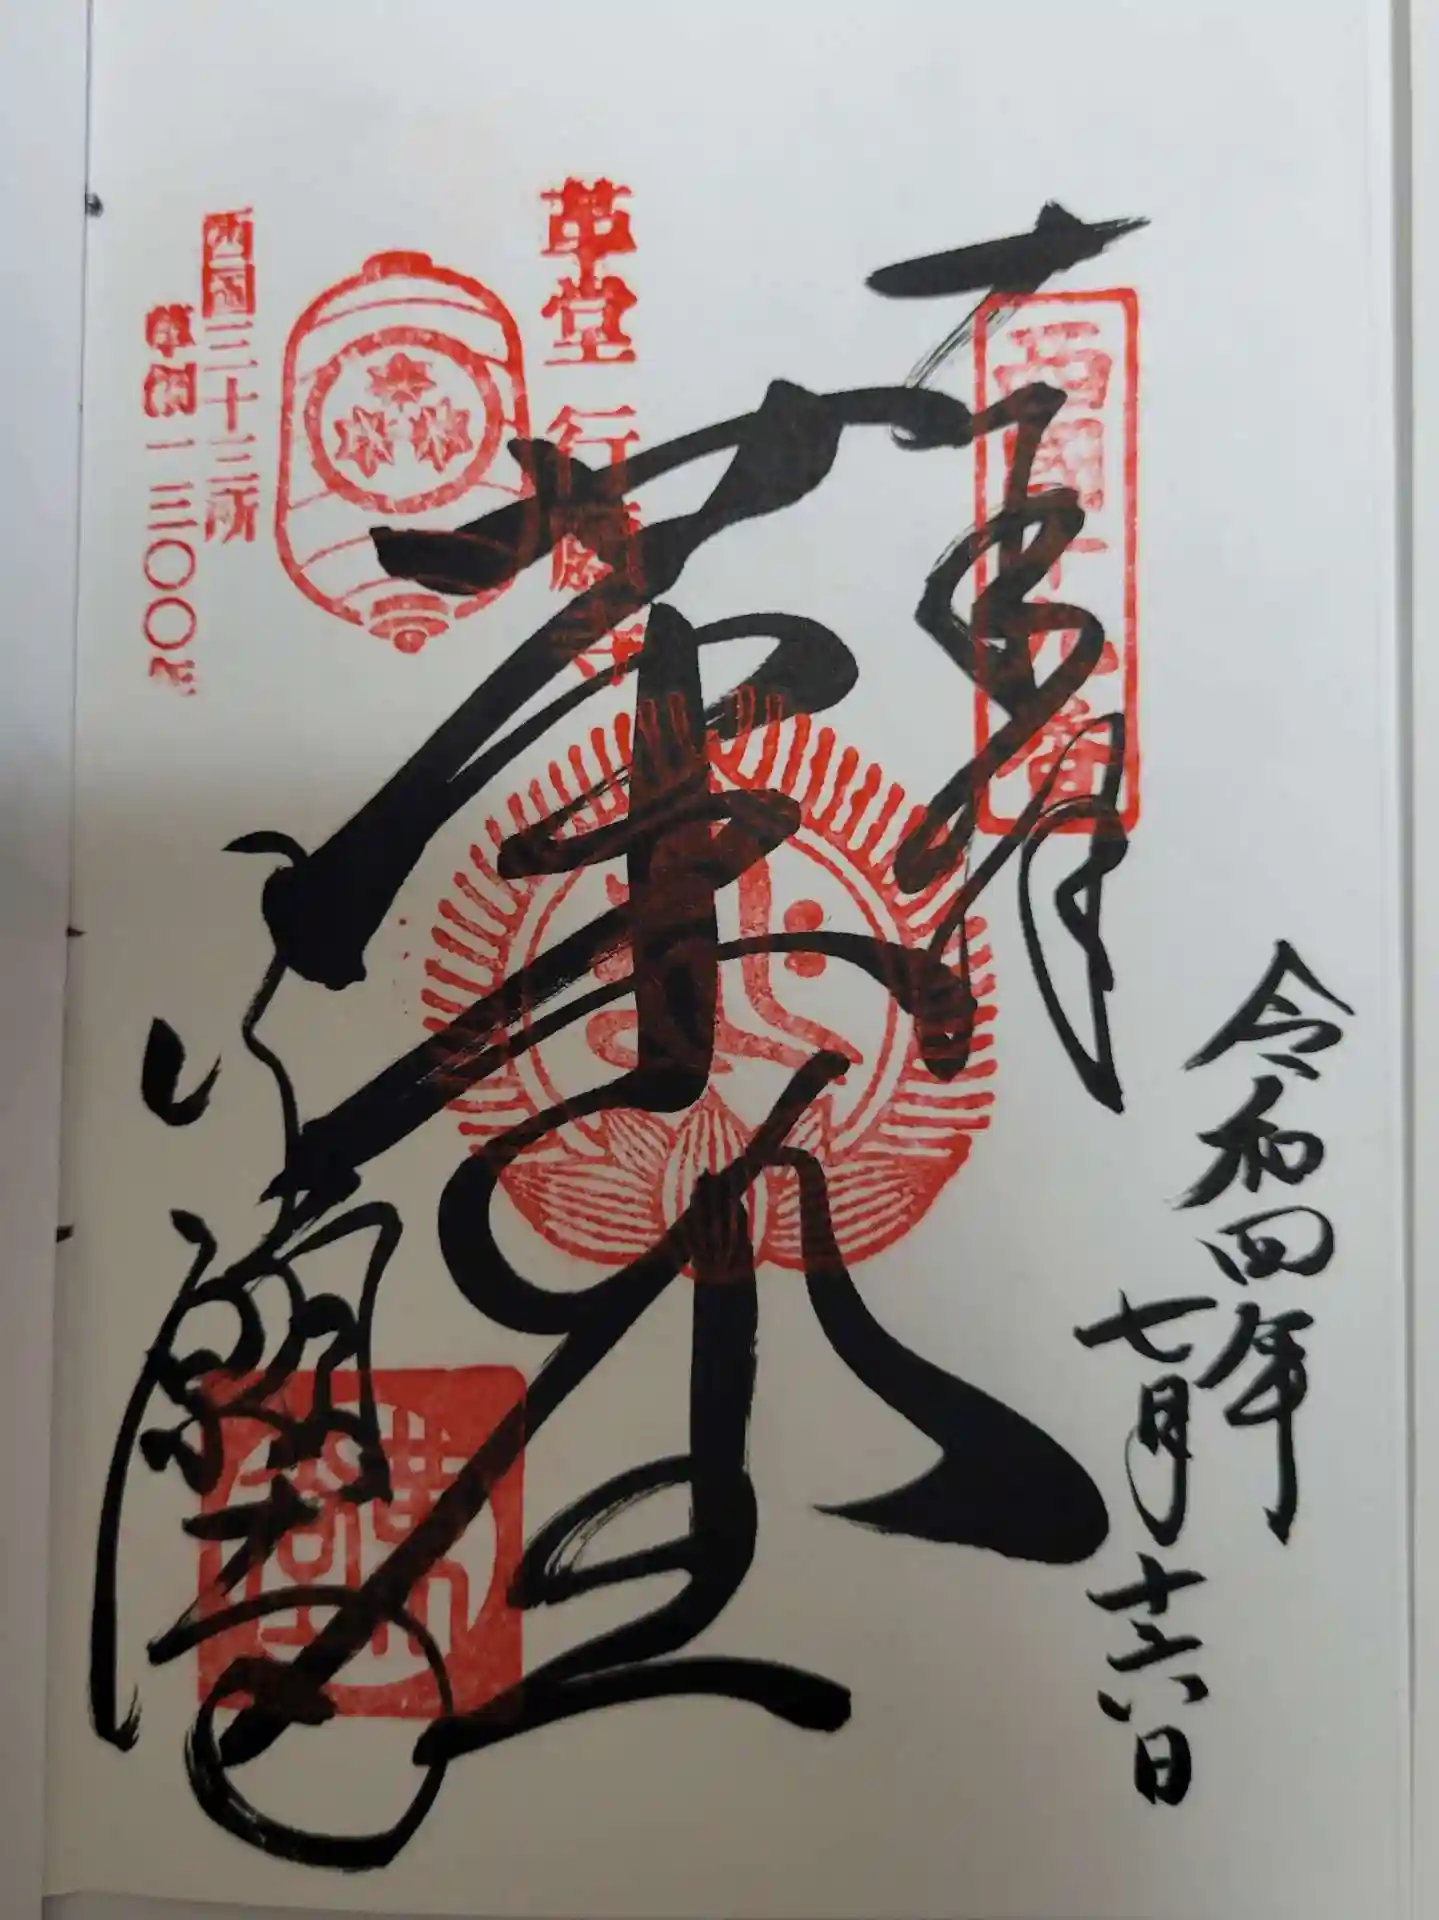 令和四年
七月十六日
奉拝
西國十九番
革堂
革堂 行願寺
行願寺
西国三十三所
草創一三〇〇年